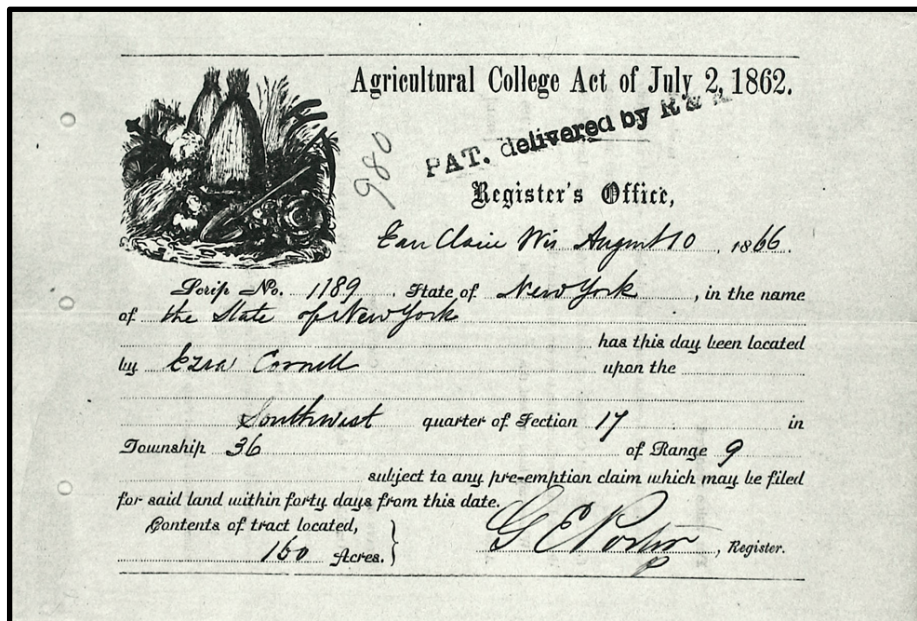 Agricultural College Act of July 2, 1862.
980
PAT. delivered by R &
Register's Office,
Eau Claire Wis August 10, 1866.
Scrip No. 1189, State of New York, in the name
of the State of New York
has this day been located
by Ezra Cornell upon the
Southwest quarter of Section 17 in
Township 36 of Range 9
subject to any pre-emption claim which may be filed
for said land within forty days from this date.
Contents of tract located,
160 Acres.} G E Porter, Register.